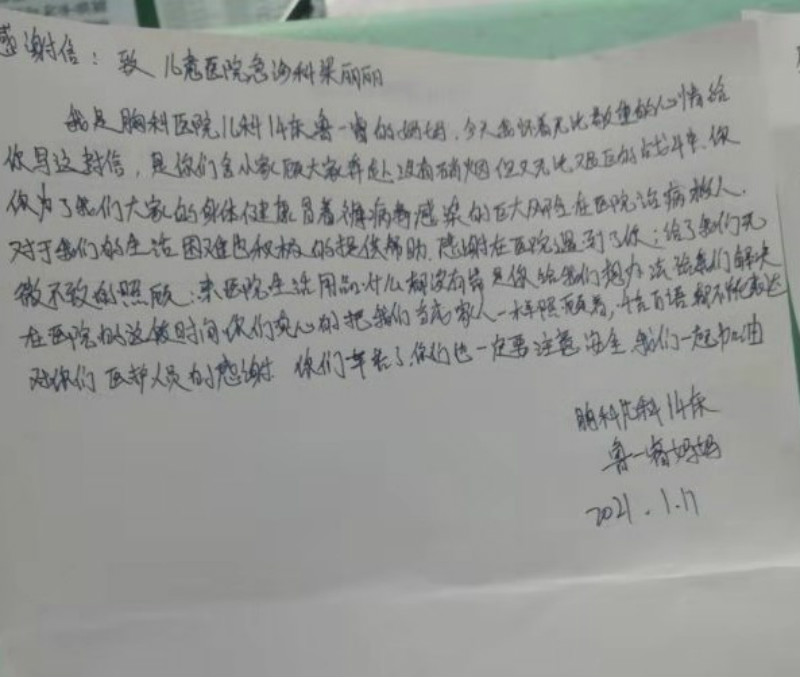 感谢信：致 儿童医院急诊科梁丽丽
我是胸科医院儿科14床鲁一睿的妈妈，今天我怀着无比敬重的心情给
你写这封信，是你们舍小家顾大家奔赴没有硝烟但又无比艰巨的战斗中，你
们为了我们大家的身体健康冒着被病毒感染的巨大风险在医院治病救人，
对于我们的生活困难也积极的提供帮助，感谢在医院遇到了你；给了我们无
微不致的照顾；来医院生活用品什么都没有带是你给我们想办法给我们解决
在医院的这段时间你们真心的把我们当成家人一样照顾着，千言万语都不能表达
对你们医护人员的感谢 你们辛苦了，你们也一定要注意安全，我们一起加油
胸科儿科14床
鲁一睿妈妈
2021.1.17